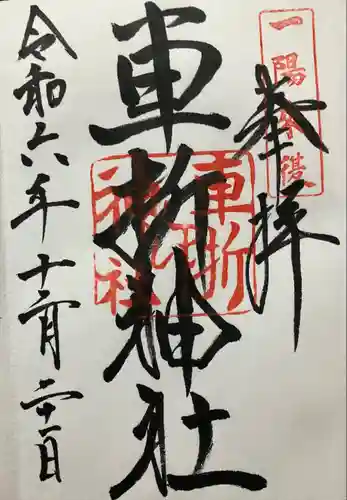 一陽来復
奉拝
車折神社
車折神社
令和六年十二月二十二日